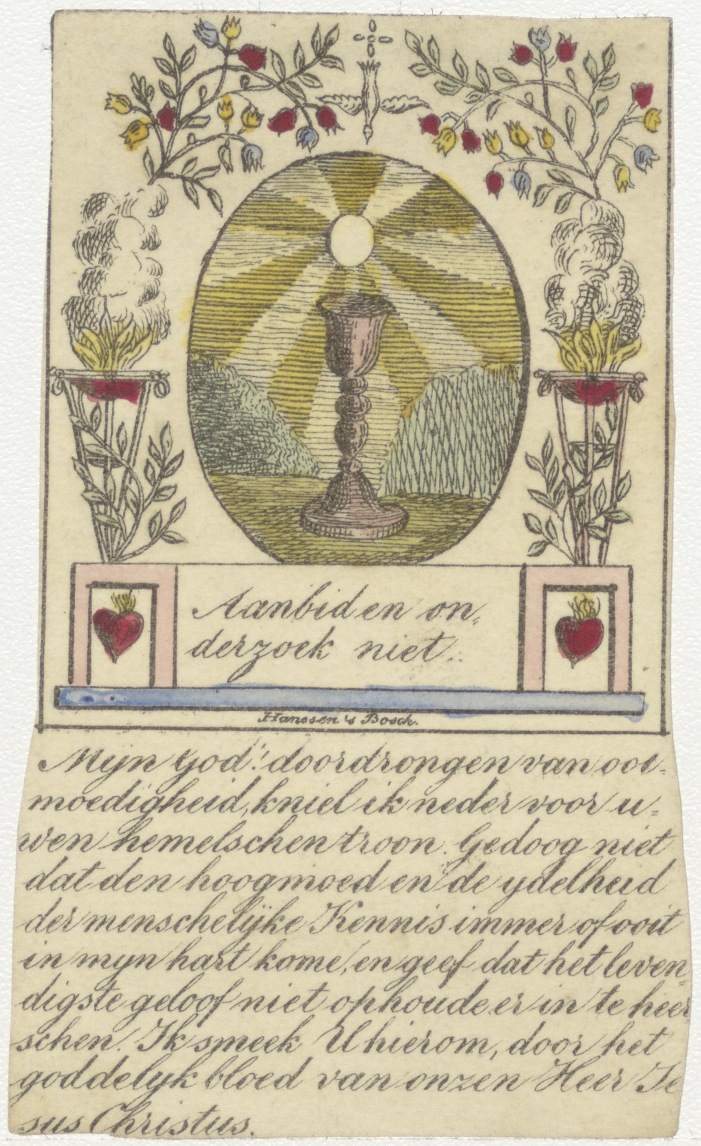 Aanbid en on,
derzoek niet..
Hanssen 's Bosch.
Mijn God! doordrongen van oot-
moedigheid, kniel ik neder voor u-
wen hemelschen troon. Gedoog niet
dat den hoogmoed en de ydelheid
der menschelijke Kennis immer of ooit
in myn hart kome, en geef dat het leven
digste geloof niet ophoude er in te heer
schen. Ik smeek U hierom, door het
goddelyk bloed van onzen Heer Je
sus Christus.